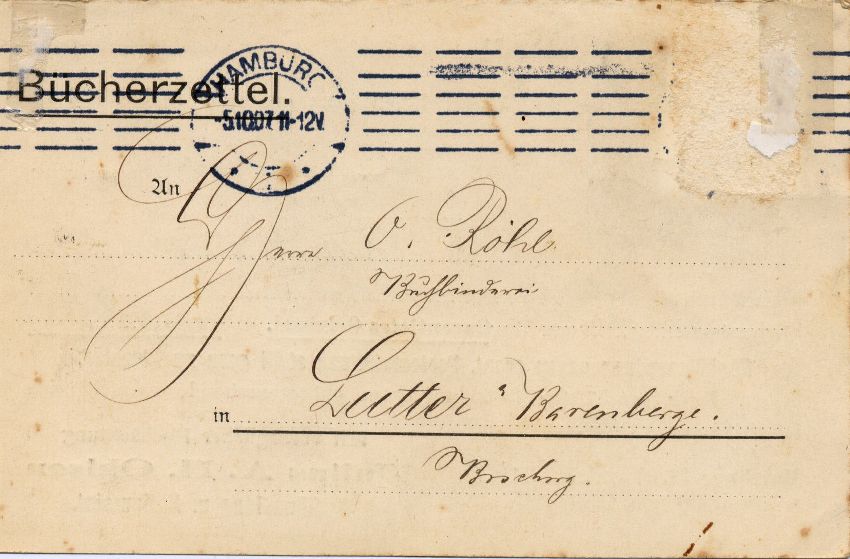 Bücherzettel.
HAMBURG
-5.10.07.11-12V.
1 1
An
Herrn O. Röhl
Buchbinderei
in Lutter a Barenberge.
Brschwg.